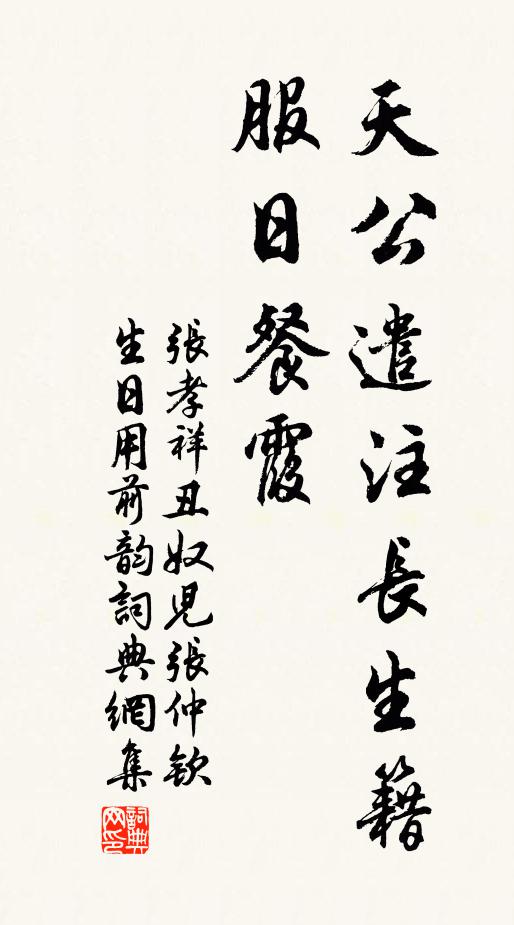 天公遣注長生籍
服日餐霞
張孝祥丑奴兒張仲欽
生日用前韵詞典網集
詞典
网印